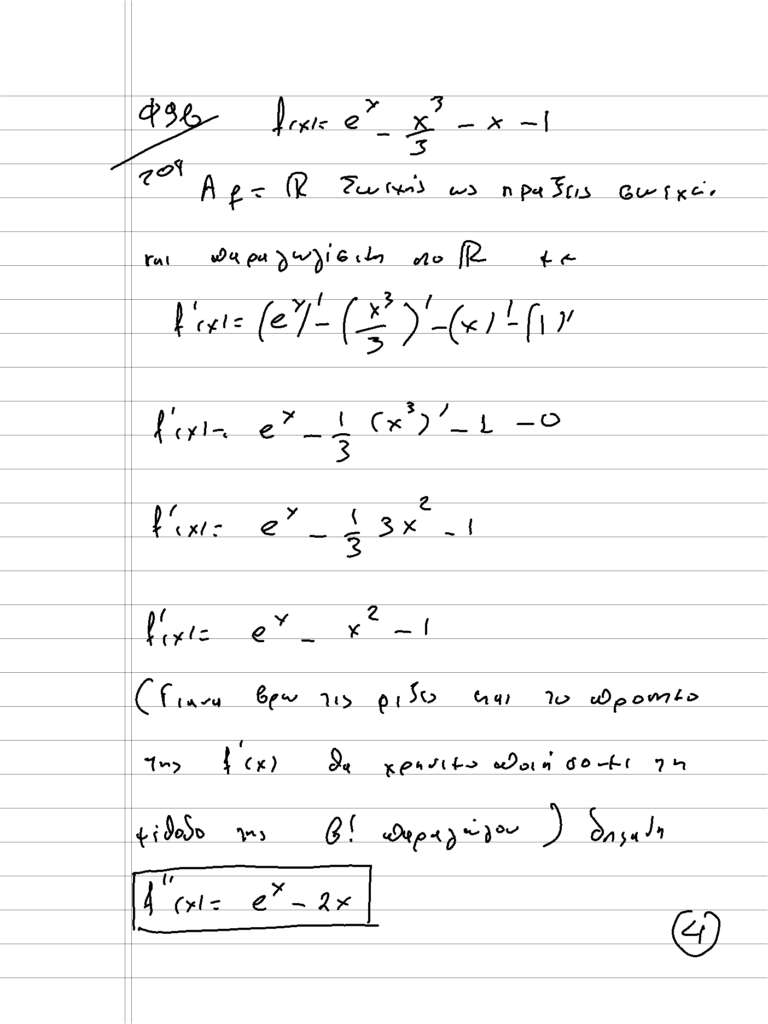 Φ9β f(x)= e^x - x^3/3 - x - 1
A f = ℝ Συνεχής ως πράξεις συνεχώ.
και παραγωγίσιμη στο ℝ με
f'(x)= (e^x)' - (x^3/3)' - (x)' - (1)'
f'(x)= e^x - 1/3 (x^3)' - 1 - 0
f'(x)= e^x - 1/3 3x^2 - 1
f'(x)= e^x - x^2 - 1
(Για να βρω τις ρίζες και το πρόσημο
της f'(x) θα χρησιμοποιήσουμε τη
μέθοδο της β! παραγώγου) δηλαδή
f''(x)= e^x - 2x
4